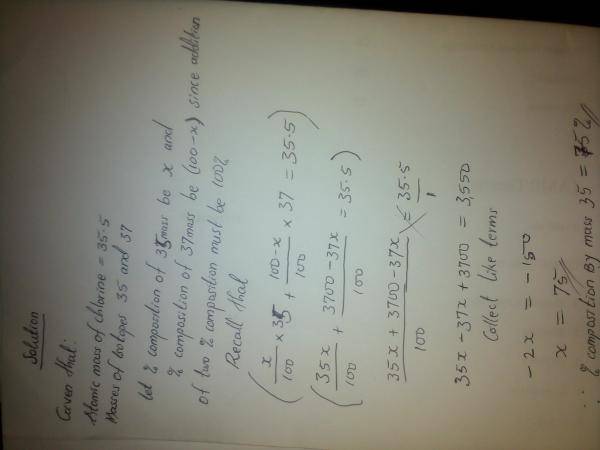 Solution
Given that:
Atomic mass of chlorine = 35.5
Masses of isotopes 35 and 37
Let % composition of 35 mass be x and
% composition of 37 mass be (100-x) since addition
of two % composition must be 100%
Recall that
(x/100 × 35 + 100-x/100 × 37 = 35.5)
(35x/100 + 3700-37x/100 = 35.5)
35x + 3700-37x/100 = 35.5/1
35x - 37x + 3700 = 3,550
Collect like terms
-2x = -150
x = 75//
∴ % composition by mass 35 = 75%//